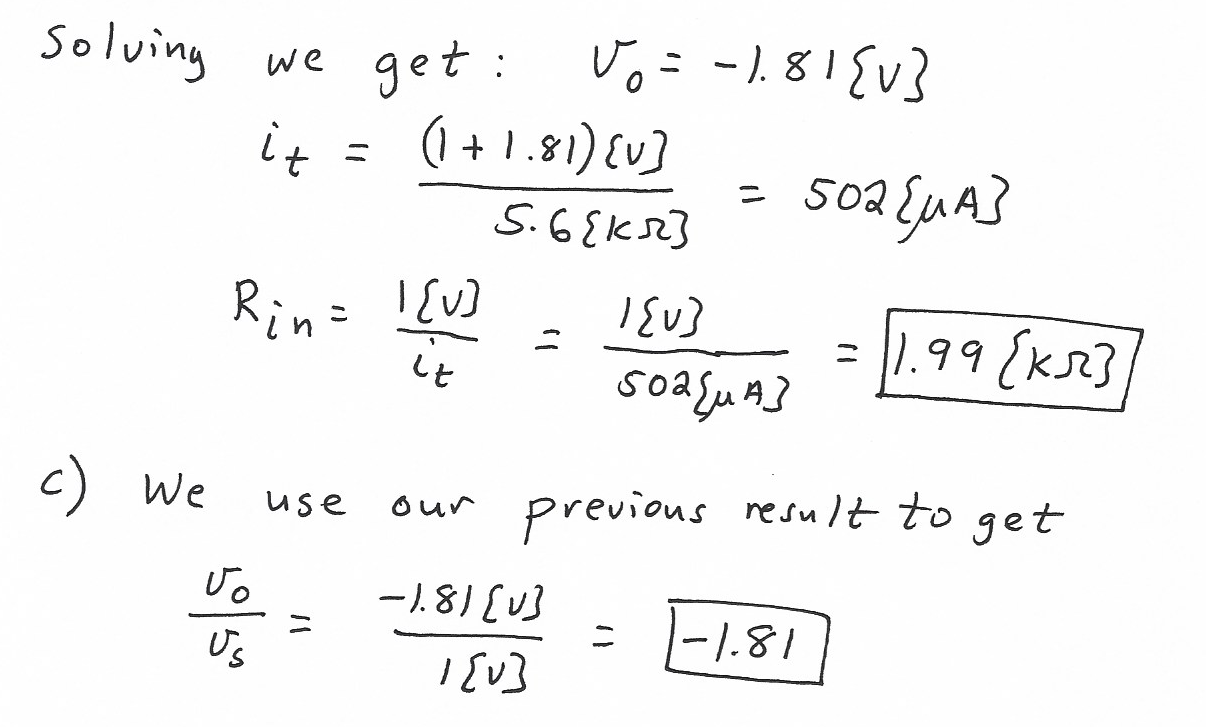 Solving we get: v₀ = -1.81{V}
i_t = (1 + 1.81){V} / 5.6{kΩ} = 502{μA}
R_in = 1{V} / i_t = 1{V} / 502{μA} = 1.99{kΩ}
c) We use our previous result to get
v₀ / v_s = -1.81{V} / 1{V} = -1.81